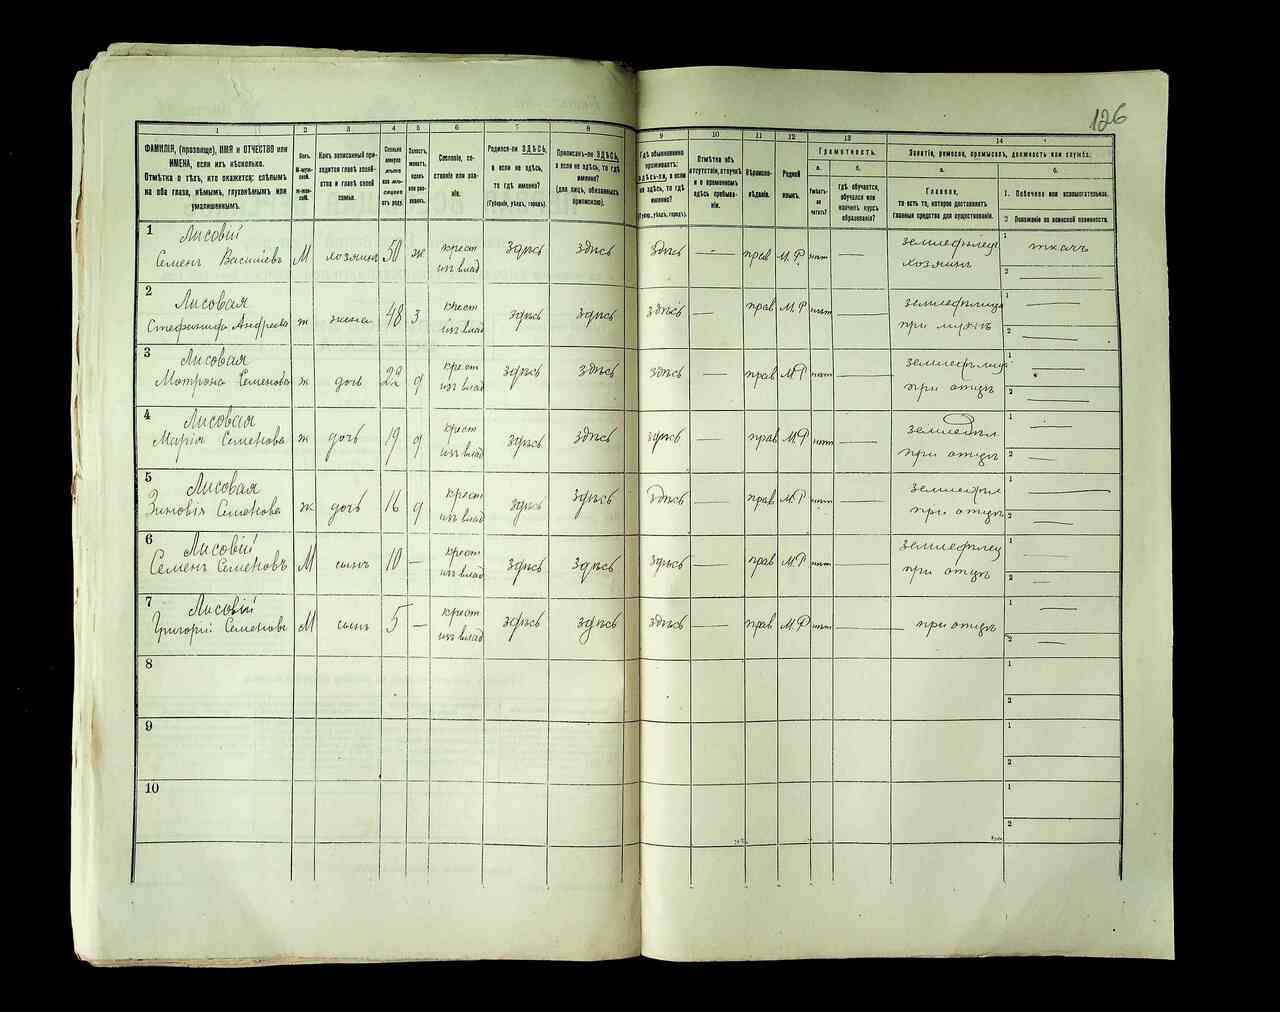 126
1 2 3 4 5 6 7 8 9 10 11 12 13 14
ФАМИЛІЯ, (прозвище), ИМЯ и ОТЧЕСТВО или
ИМЕНА, если ихъ нѣсколько.
Отмѣтка о тѣхъ, кто окажется: слѣпымъ
на оба глаза, нѣмымъ, глухонѣмымъ или
умалишеннымъ.
Полъ.
М-мужской.
ж-женскій.
Какъ записанный приходится главѣ хозяйства и главѣ своей семьи.
Сколько минуло лѣтъ или мѣсяцевъ отъ роду.
Холостъ, женатъ, вдовъ или разведенъ.
Сословіе, состояніе или званіе.
Родился-ли ЗДѢСЬ,
а если не здѣсь,
то гдѣ именно?
(Губернія, уѣздъ, городъ).
Приписанъ-ли ЗДѢСЬ,
а если не здѣсь, то гдѣ
именно?
(для лицъ, обязанныхъ
припискою).
Гдѣ обыкновенно
проживаетъ:
здѣсь-ли, а если
не здѣсь, то гдѣ
именно?
(Губер., уѣздъ, городъ).
Отмѣтка объ
отсутствіи, отлучкѣ
и о временномъ
здѣсь пребываніи.
Вѣроисповѣданіе.
Родной
языкъ.
Грамотность.
а.
Умѣетъ-ли читать?
б.
гдѣ обучается,
обучался или
кончилъ курсъ
образованія?
Занятіе, ремесло, промыселъ, должность или служба.
а.
Главное,
то есть то, которое доставляет
главныя средства для существованія.
б.
1. Побочное или вспомогательное.
2 Положеніе по воинской повинности.
1 Лисовій
Семенъ Василіевъ М хозяинъ 50 ж крест изъ влад здѣсь здѣсь здѣсь — прав М.Р нѣт — землефѣлец хозяинъ 1 ткачъ 2 —
2 Лисовая
Стефанифа Андреева ж жена 48 з крест изъ влад здѣсь здѣсь здѣсь — прав М.Р нѣт — землефѣлица при мужѣ 1 — 2 —
3 Лисовая
Матрона Семенова ж дочь 22 д крест изъ влад здѣсь здѣсь здѣсь — прав М.Р нѣт — землефѣлица при отцѣ 1 — 2 —
4 Лисовая
Марія Семенова ж дочь 19 д крест изъ влад здѣсь здѣсь здѣсь — прав М.Р нѣт — землефѣл при отцѣ 1 — 2 —
5 Лисовая
Зиновія Семенова ж дочь 16 д крест изъ влад здѣсь здѣсь здѣсь — прав М.Р нѣт — землефѣл при отцѣ 1 — 2 —
6 Лисовій
Семенъ Семеновъ М сынъ 10 — крест изъ влад здѣсь здѣсь здѣсь — прав М.Р нѣт — землефѣлец при отцѣ 1 — 2 —
7 Лисовій
Григорій Семеновъ М сынъ 5 — крест изъ влад здѣсь здѣсь здѣсь — прав М.Р нѣт — при отцѣ 1 — 2 —
8 1 2
9 1 2
10 1 2